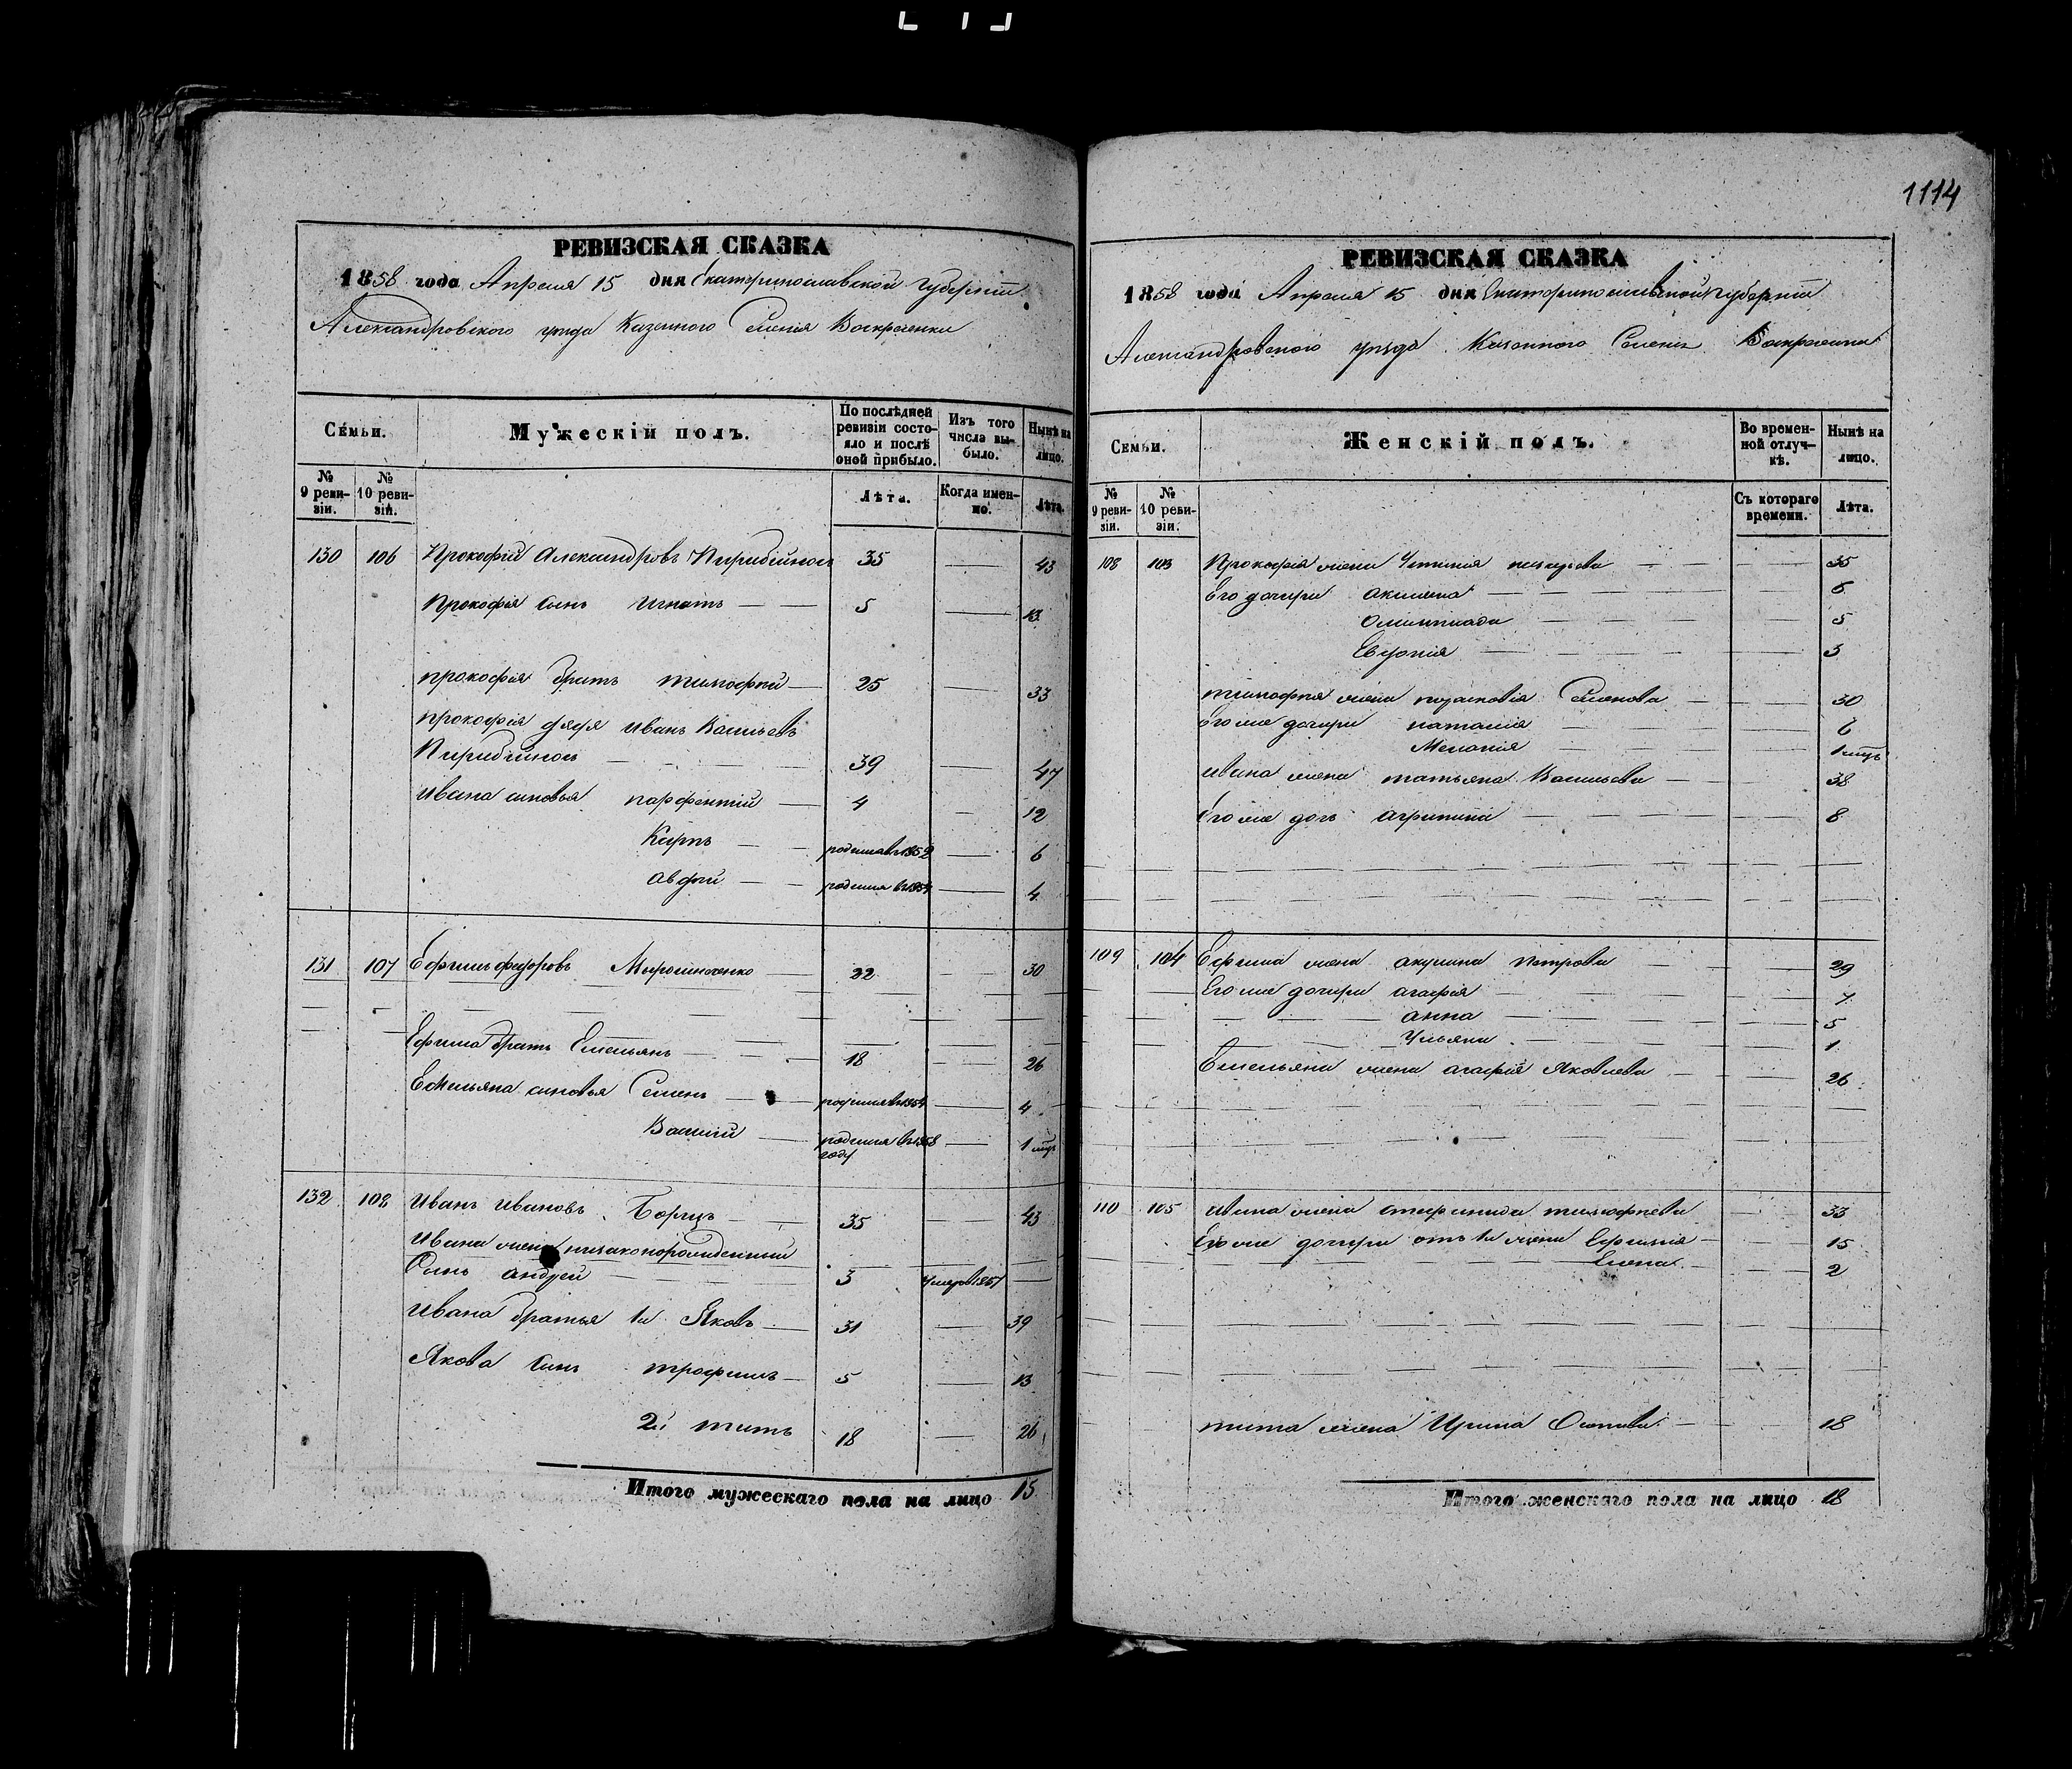 1114
РЕВИЗСКАЯ СКАЗКА
1858 года Апреля 15 дня Екатеринославской Губерніи
Александровского уезда Казенного Селенія Воскресенки
Семьи. Мужескій полъ. По послѣдней ревизіи состояло и послѣ оной прибыло. Изъ того числа выбыло. Нынѣ на лицо.
№ 9 ревизіи. № 10 ревизіи. Лѣта. Когда именно. Лѣта.
130 106 Прокофій Александровъ 35 43
Прокофія сынъ Игнатъ 5 13
прокофія братъ тимофей 25 33
прокофія дядя иванъ Васильевъ
39 47
ивана сыновья парфентій 4 12
Карпъ родился въ 1852 6
авдей родился въ 1854 4
131 107 Ефимъ федоровъ Мирошниченко 22 30
Ефима братъ Емельянъ 18 26
Емельяна сыновья Семенъ родился въ 1854 4
Василій родился въ 1858 году 1 мцъ
132 108 Иванъ ивановъ Борщъ 35 43
ивана жены незаконорожденный
Сынъ андрей 3 умеръ 1851
ивана братья 1й Яковъ 31 39
Якова сынъ трофимъ 5 13
2й титъ 18 26
Итого мужескаго пола на лицо 15
РЕВИЗСКАЯ СКАЗКА
1858 года Апреля 15 дня Екатеринославской Губерніи
Александровского уезда Казенного Селенія Воскресенки
Семьи. Женскій полъ. Во временной отлучкѣ. Нынѣ на лицо.
№ 9 ревизіи. № 10 ревизіи. Съ котораго времени. Лѣта.
108 103 Прокофія жена 35
Его дочери акилина 6
Олимпиада 5
Евдокія 3
тимофея жена парасковія Семенова 30
Его же дочери наталія 6
Меланія 1 мцъ
ивана жена татьяна Васильева 38
Его же дочь агрипина 8
109 104 Ефима жена акулина петрова 29
Его же дочери агафія 7
анна 5
Ульяна 1
Емельяна жена агафія Яковлева 26
110 105 ивана жена степанида тимофеева 33
Его же дочери отъ 1й жены Ефимія 15
Елена 2
тита жена Ирина Осипова 18
Итого женскаго пола на лицо 18